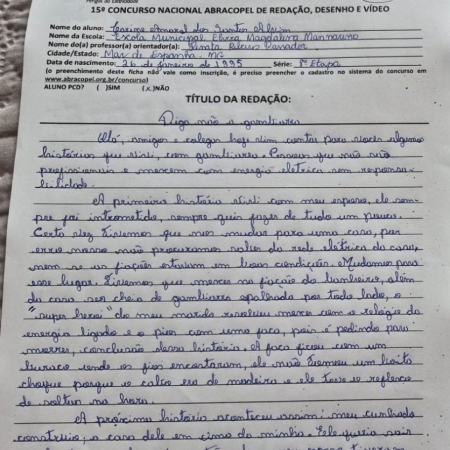 15º CONCURSO NACIONAL ABRACOPEL DE REDAÇÃO, DESENHO E VÍDEO
Nome do aluno: Amaral dos Santos
Nome da Escola: Escola Municipal Elvira Magdalena Mannarino
Nome do(a) professor(a) orientador(a):
Cidade/Estado: Mar de Espanha MG
Data de nascimento: 26 de janeiro de 1995 Série: 8ª Etapa
(o preenchimento deste ficha não vale como inscrição, é preciso preencher o cadastro no sistema do concurso em
www.abracopel.org.br/concurso)
ALUNO PCD? ( )SIM (x)NÃO
TÍTULO DA REDAÇÃO:
Diga não a gambiarra
Olá, amigos e colegas hoje vim contar para vocês algumas
histórias que vivi, com gambiarras. Pessoas que não são
profissionais e mexem com energia elétrica sem responsa-
bilidade.
A primeira história vivi com meu esposo, ele sem-
pre foi intrometido, sempre quis fazer de tudo um pouco.
Certa vez tivemos que nos mudar para uma casa, por
erro nosso não procuramos saber da rede elétrica da casa,
nem se as fiações estavam em boas condições. Mudamos para
esse lugar. Tivemos que mexer na fiação do banheiro, além
da casa ser cheia de gambiarras espalhada por todo lado, o
"super herói" do meu marido resolveu mexer com o relógio da
energia ligado e o pior com uma faca, pois é pedindo para
morrer, conclusão dessa história. A faca ficou com um
buraco onde os fios encostaram, ele não tomou um baita
choque porque o cabo era de madeira e ele teve o reflexo
de soltar na hora.
A próxima história aconteceu assim: meu cunhado
construiu, a casa dele em cima da minha. Ele queria sair